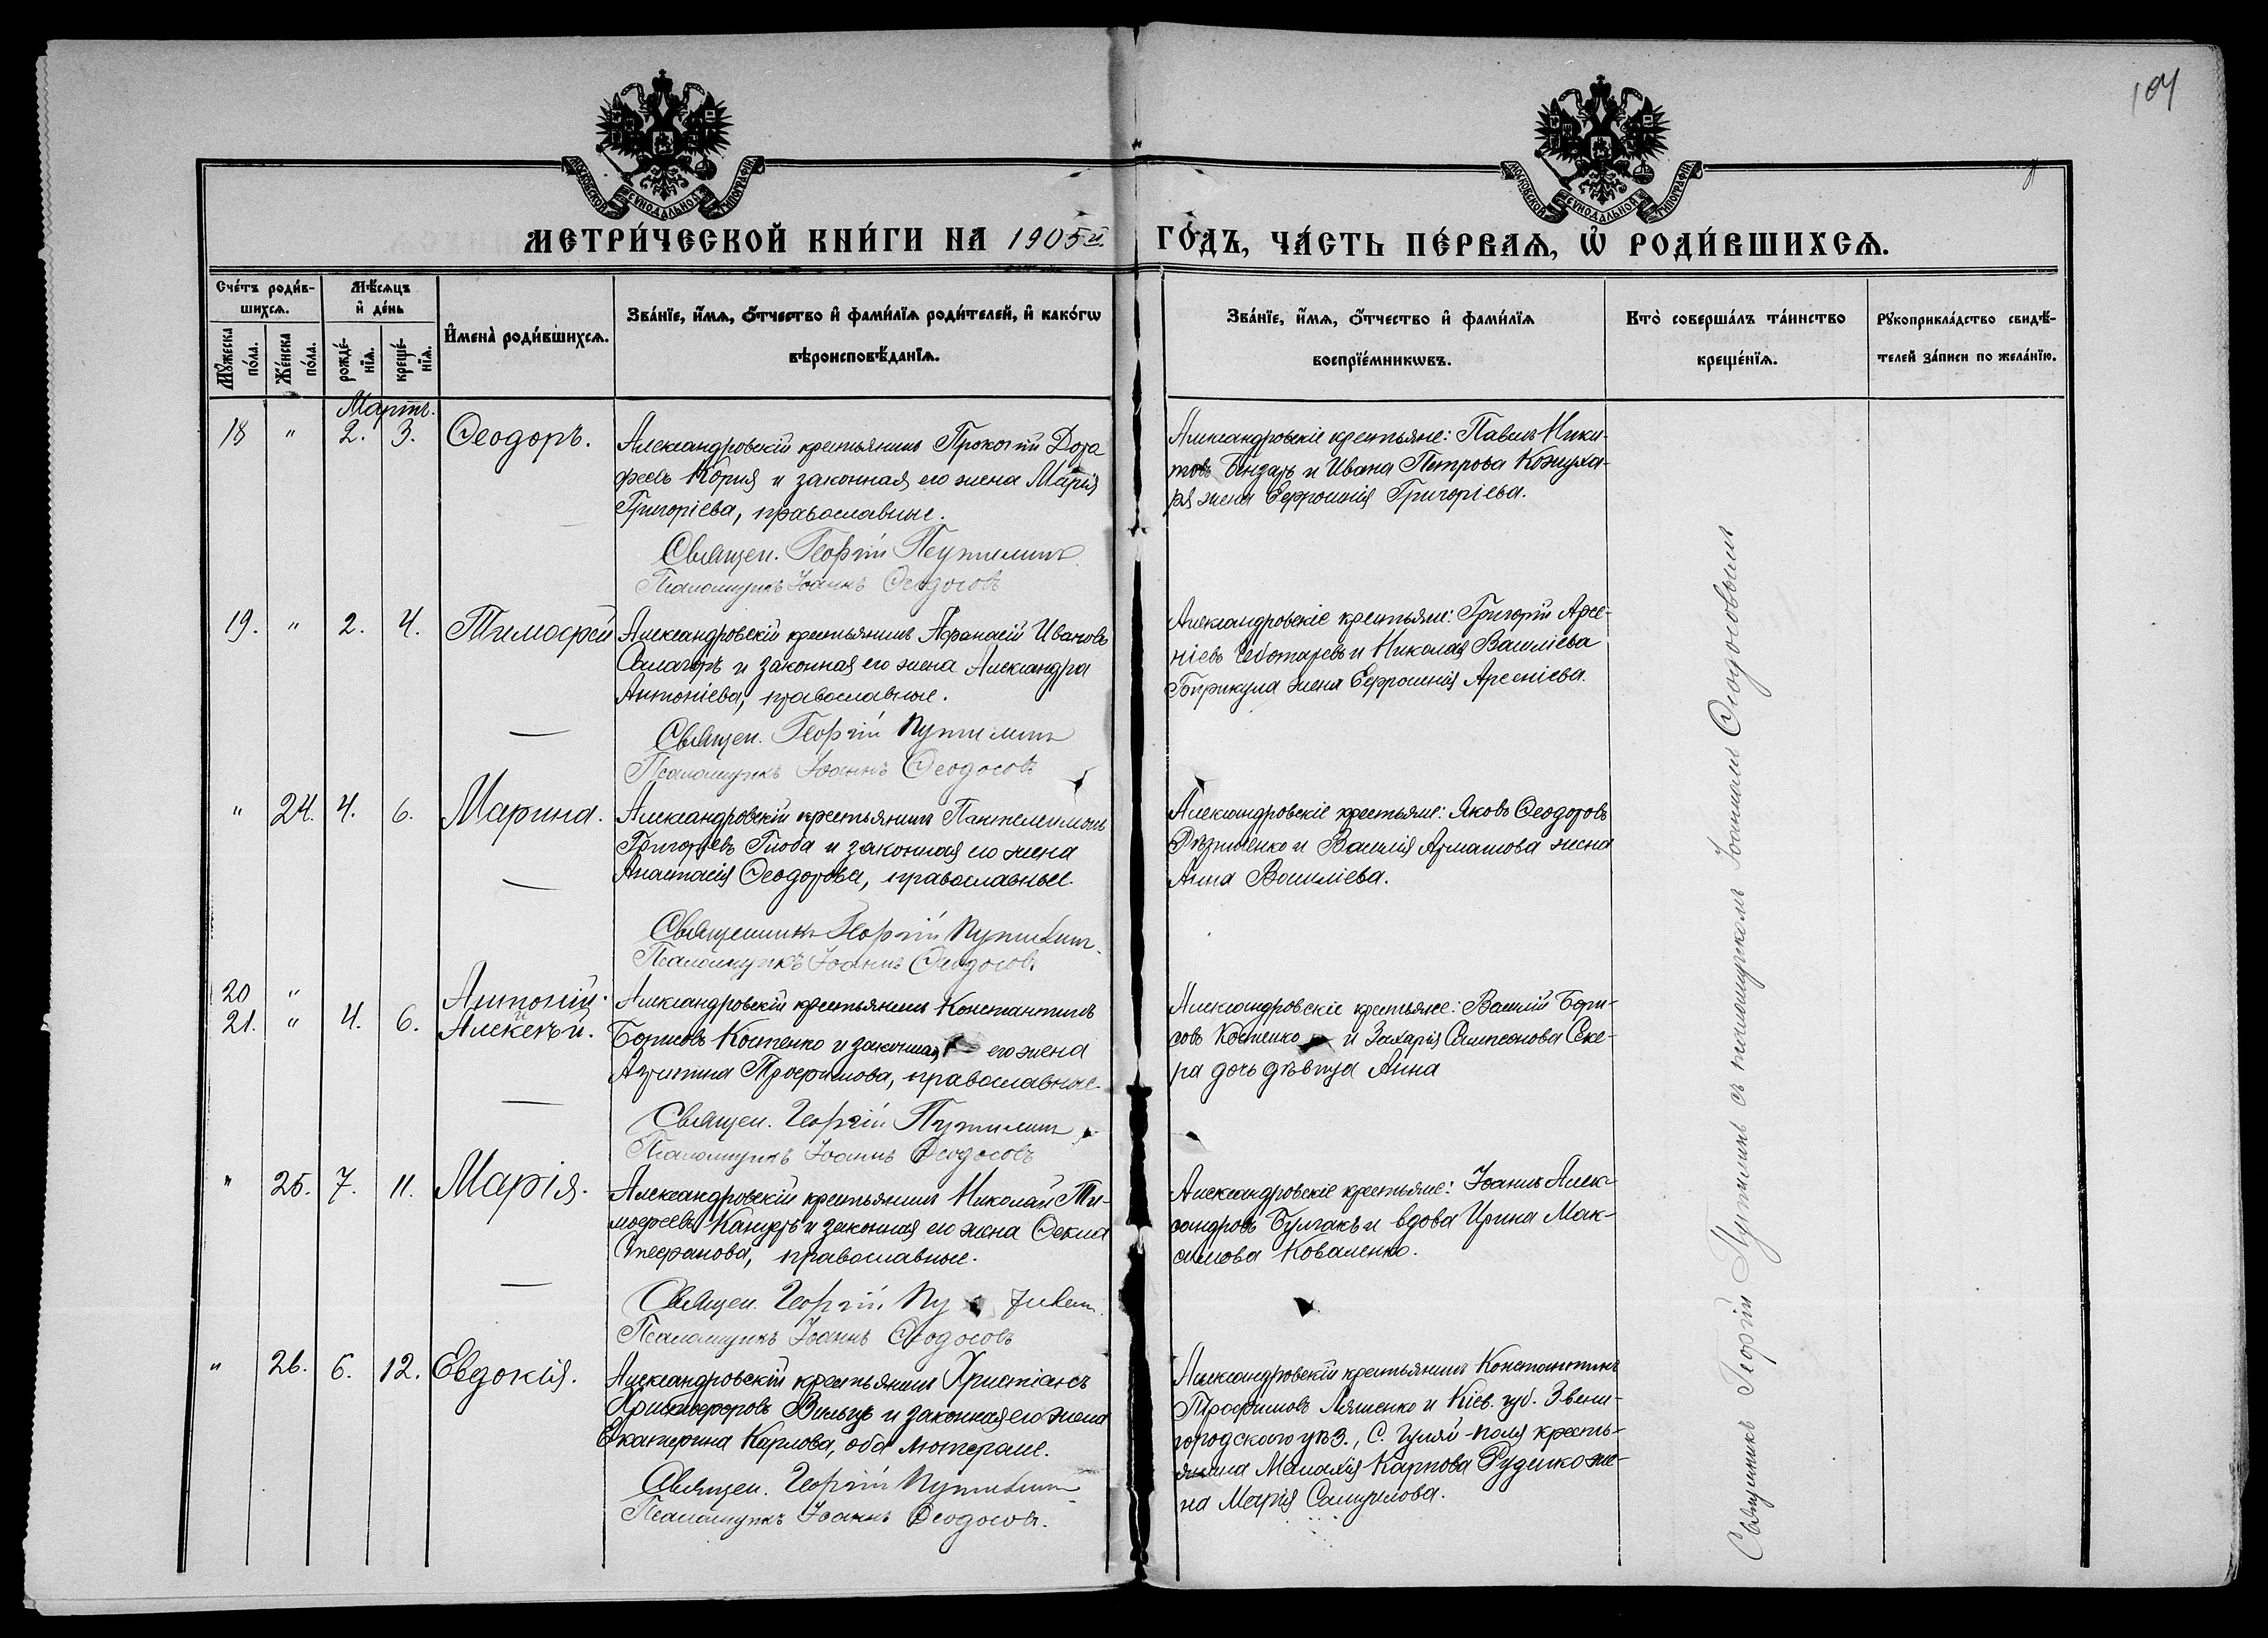 104
МОСКОВСКОЙ СѴНОДАЛЬНОЙ ТИПОГРАФІИ
МОСКОВСКОЙ СѴНОДАЛЬНОЙ ТИПОГРАФІИ
МЕТРИ́ЧЕСКОЙ КНИ́ГИ НА 1905й ГО́ДЪ, ЧА́СТЬ ПЕ́РВАѦ, Ѡ҆ РОДИ́ВШИХСѦ.
Сче́тъ роди́в-
шихсѧ.
Мꙋ́жеска по́ла.
Же́нска по́ла.
Мѣ́сѧцъ
и҆ де́нь
рожде́-
нїѧ.
креще́-
нїѧ.
И҆мена̀ роди́вшихсѧ.
Зва́нїе, и҆́мѧ, ѻ҆́тчество и҆ фами́лїѧ роди́телей, и҆ како́гѡ
вѣроисповѣ́данїѧ.
Зва́нїе, и҆́мѧ, ѻ҆́тчество и҆ фами́лїѧ
воспрїе́мникѡвъ.
Кто̀ соверша́лъ та́инство
креще́нїѧ.
Рꙋкоприкла́дство свидѣ́-
телей за́писи по жела́нїю.
Мартъ.
18 " 2. 3. Ѳеодоръ.
Александровскій крестьянинъ Прокопій Доро
феевъ Корня и законная его жена Марія
Григоріева, православные.
Священ. Георгій Путилинъ
Псаломщикъ Іоаннъ Ѳеодосовъ
Александровскіе крестьяне: Павелъ Ники-
товъ Бензарь и Ивана Петрова Кожуха-
ря жена Ефросинія Григоріева.
19. " 2. 4. Тимоѳей
Александровскій крестьянинъ Аѳанасій Ивановъ
Салагоръ и законная его жена Александра
Антоніева, православные.
Священ. Георгій Путилинъ
Псаломщикъ Іоаннъ Ѳеодосовъ
Александровскіе крестьяне: Григорій Арсе-
ніевъ Чеботаревъ и Николая Василіева
Бирикула жена Ефросинія Арсеніева.
" 24. 4. 6. Марина.
Александровскій крестьянинъ Пантелеимонъ
Григорьевъ Глоба и законная его жена
Анастасія Ѳеодорова, православные.
Священникъ Георгій Путилинъ.
Псаломщикъ Іоаннъ Ѳеодосовъ
Александровскіе крестьяне: Яковъ Ѳеодоровъ
Рѣзниченко и Василія Армашова жена
Анна Василіева.
20 "
21. " 4. 6. Антоній
и
Алексѣй.
Александровскій крестьянинъ Константинъ
Борисовъ Костенко и законная его жена
Агрипина Трофимова, православные.
Священ. Георгій Путилинъ
Псаломщикъ Іоаннъ Ѳеодосовъ
Александровскіе крестьяне: Василій Бори-
совъ Костенко и Захарія Сампсонова Секе-
ра дочь дѣвица Анна
" 25. 7. 11. Марія.
Александровскій крестьянинъ Николай Ти-
моѳеевъ Канцеръ и законная его жена Ѳекла
Стефанова, православные.
Священ. Георгій Путилинъ
Псаломщикъ Іоаннъ Ѳеодосовъ
Александровскіе крестьяне: Іоаннъ Алек-
сандровъ Булгакъ и вдова Ирина Мак-
симова Коваленко.
" 26. 6. 12. Евдокія.
Александровскій крестьянинъ Христіанъ
Христофоровъ Вильцъ и законная его жена
Екатерина Карлова, оба лютеране.
Священ. Георгій Путилинъ
Псаломщикъ Іоаннъ Ѳеодосовъ.
Александровскій крестьянинъ Константинъ
Трофимовъ Ляшенко и Кіев. губ. Звени-
городского уѣз., С. Гуляй-поля кресть-
янина Малахія Карпова Руденко же-
на Марія Самуилова.
Священникъ Георгій Путилинъ съ псаломщикомъ Іоанномъ Ѳеодосовымъ